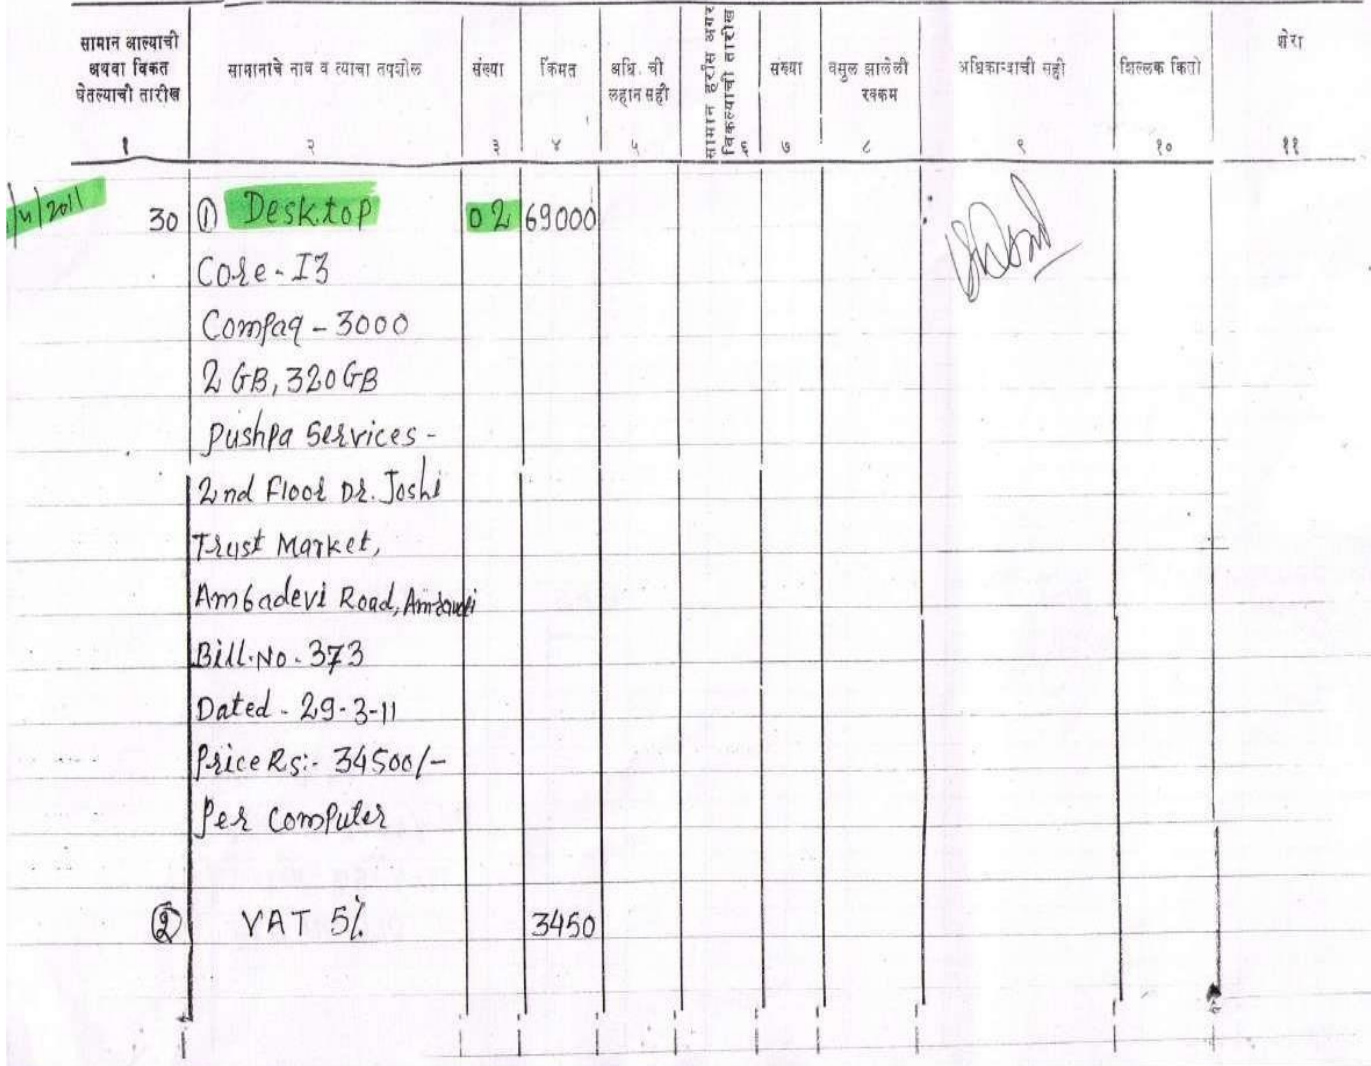 सामान आल्याची अथवा विकत घेतल्याची तारीख
सामानाचे नाव व त्याचा तपशील
संख्या
किंमत
अधि. ची लहान सही
सामान हर्रास अगर विकल्याची तारीख
संख्या
वसुल झालेली रक्कम
अधिकाऱ्याची सही
शिल्लक किती
शेरा
१ २ ३ ४ ५ ६ ७ ८ ९ १० ११
/4/2011 30 ① Desktop 02 69000
Core - I3
Compaq - 3000
2 GB, 320 GB
Pushpa Services -
2nd Floor Dr. Joshi
Trust Market,
Ambadevi Road, Amravati
Bill.No. 373
Dated - 29-3-11
Price Rs:- 34500/-
Per Computer
② VAT 5% 3450